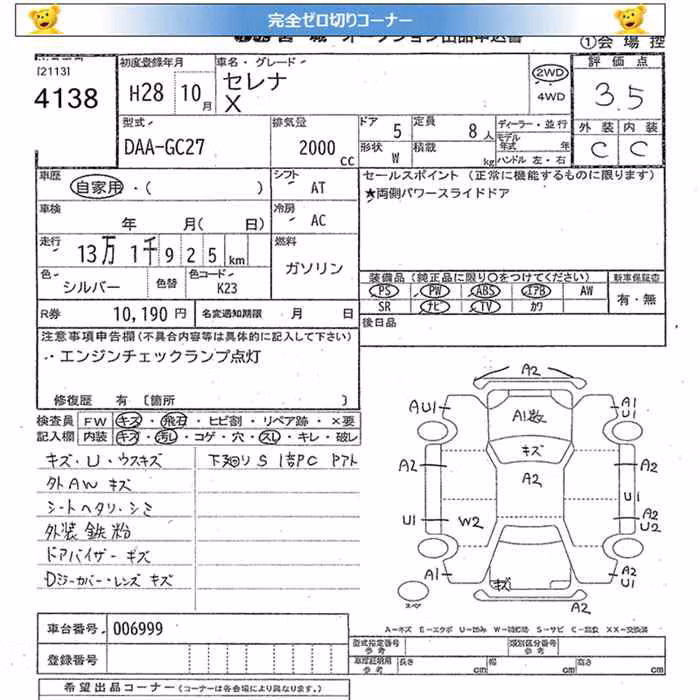 完全ゼロ切りコーナー
宮城 オークション出品申込書
①会場控
[2113]
4138
初度登録年月
H28 10月
車名・グレード
セレナ
X
2WD
4WD
評価点
3.5
外装 内装
C C
型式
DAA-GC27
排気量
2000 cc
ドア 5
定員 8人
形状 W
積載 kg
ディーラー・並行
モデル年式 年
ハンドル 左・右
車歴
自家用・( )
シフト AT
セールスポイント (正常に機能するものに限ります)
★両側パワースライドドア
車検
年 月( 日)
冷房 AC
走行
13万 1千 9 2 5 km
燃料
ガソリン
色
シルバー
色替
色コード
K23
装備品 (純正品に限り○をつけてください)
新車保証書
PS PW ABS エアB AW
SR ナビ TV カワ
有・無
R券 10,190 円
名変通知期限 月 日
後日品
注意事項申告欄 (不具合内容等は具体的に記入して下さい)
・エンジンチェックランプ点灯
修復歴 有 [箇所 ]
検査員 FW キズ・飛石・ヒビ割・リペア跡・×要
記入欄 内装 キズ・汚し・コゲ・穴・スレ・キレ・破レ
キズ・U・ウスキズ
外AW キズ
シートヘタリ・シミ
外装 鉄粉
ドアバイザー キズ
Dミラーカバー・レンズ キズ
下廻りS
A2
AU1
A1
U1
A1数
キズ
A2
A2
A2
U1
U1
W2
A2
U2
A1
A2
U1
キズ
A2
スペア
A=キズ E=エクボ U=凹み W=補修跡 S=サビ C=腐食 XX=交換済
車台番号 006999
登録番号
型式指定番号 参考
類別区分番号 参考
車庫証明用 参考
長さ cm 幅 cm 高さ cm
希望出品コーナー (コーナーは各会場により異なります。)